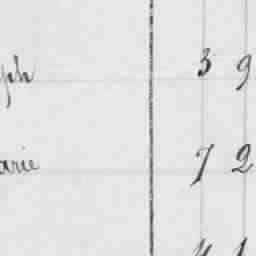 ph 39
arie 72